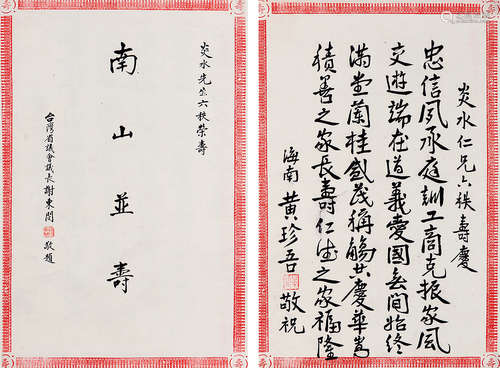 炎水仁兄六秩壽慶
忠信夙承庭訓工商克振家風
交遊端在道義愛國無間始終
滿堂蘭桂盛茂稱觴共慶華嵩
積善之家長壽仁德之家福隆
海南黃珍吾敬祝
炎水先生六秩榮壽
南山並壽
台灣省議會議長謝東閔敬題